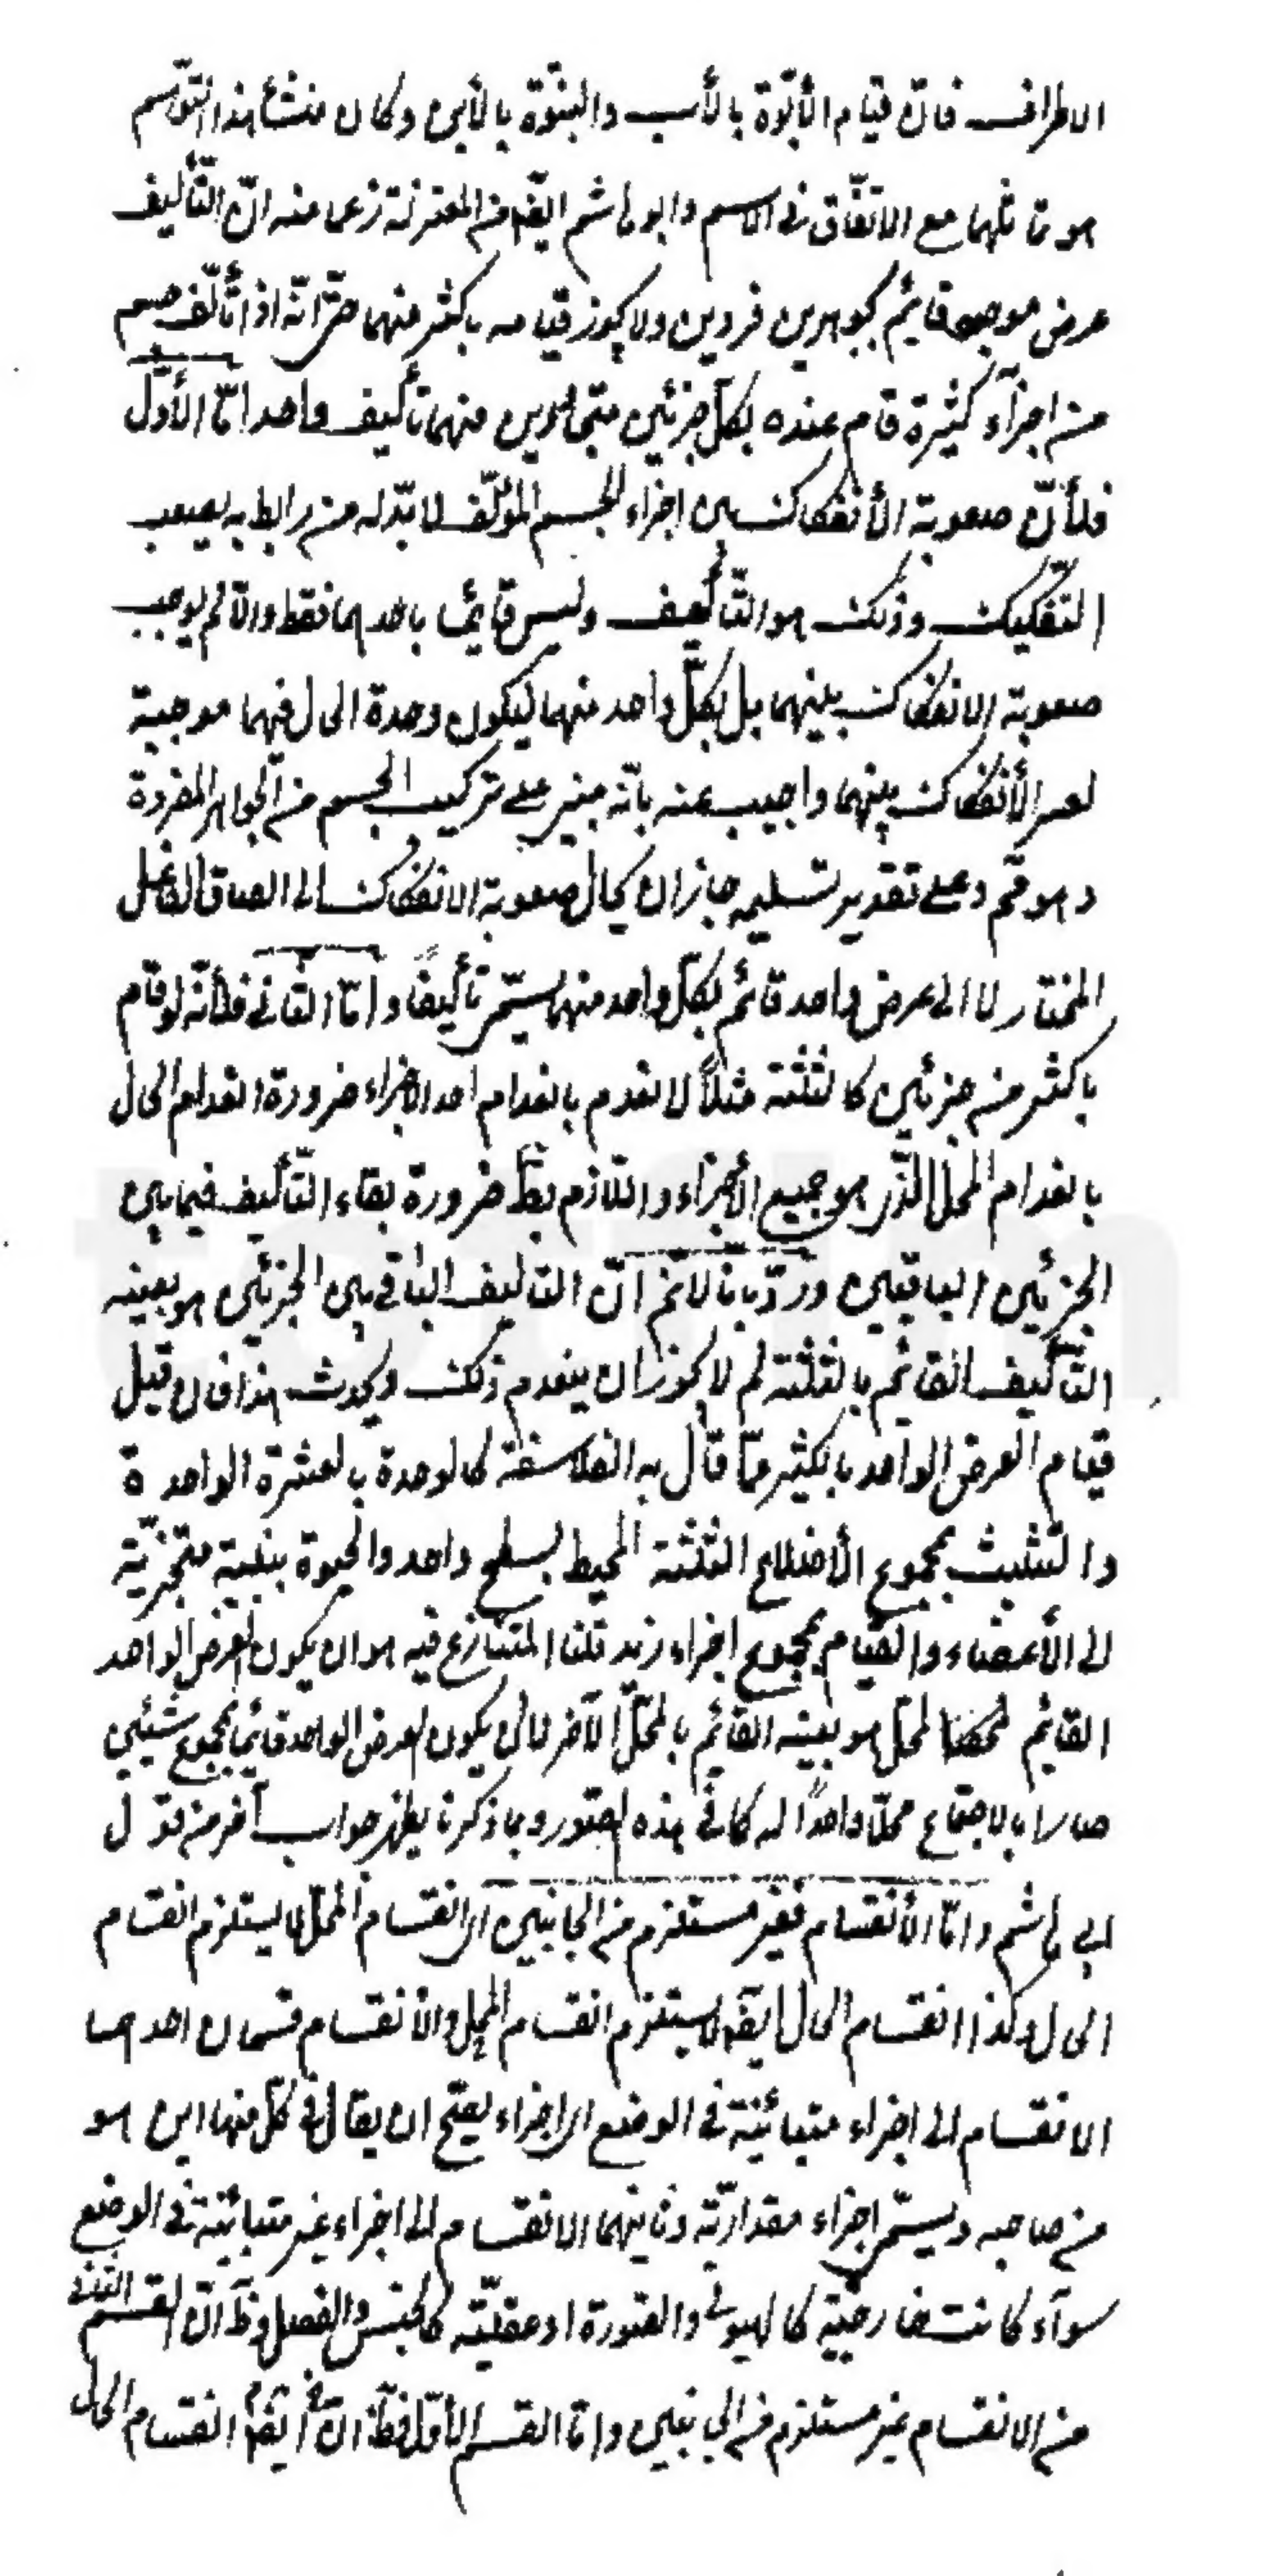 الاطراف فان قيام الأبوّة بالأب والبنوّة بالأبن وكان منشأ هذا التوّهم
هو تماثلهما مع الاتّفاق في الاسم وابو هاشم ايضً من المعتزلة زعما منه انّ التّأليف
عرض موجود قايم بجوهرين فردين ولا يجوز قيامه باكثر منهما حتّى انّه اذا تألّف جسم
من اجزآء كثيرة قام عنده بكلّ جزئين متجاورين منهما تأليف واحد امّا الأوّل
فلأنّ صعوبة الأنفكاك بين اجزاء الجسم المؤلّف لا بدّ له من رابط به يصعب
التّفكيك وذلك هو التّأليف وليس قائما باحدهما فقط والّا لم يوجب
صعوبة الانفكاك بينهما بل بكلّ واحد منهما ليكون وحدة الحال فيهما موجبة
لعسر الأنفكاك بينهما واجيب عنه بانّه مبني على تركيب الجسم من الجواهر المفردة
وهو مم وعلى تقدير تسليمه جاز ان يحال صعوبة الانفكاك الى الصاق الفاعل
المختار لا الى عرض واحد قائم بكلّ واحد منهما يسمّى تأليفًا وامّا الثّاني فلأنّه لو قام
باكثر من جزئين كالثلثة مثلاً لانعدم بانعدام احد الاجزاء ضرورة انعدام الحال
بانعدام المحل الّذى هو جميع الأجزاء واللّازم بط ضرورة بقاء التّأليف فيما بين
الجزئين الباقيين وردّ بانّا لا نم انّ التاليف الباقي بين الجزئين هو بعينه
التّأليف القائم بالثلثة لم لا يجوز ان ينعدم ذلك ويحدث هذا فان قيل
قيام العرض الواحد بالكثير ممّا قال به الفلاسفة كالوحدة بالعشرة الواحدة
والتثليث بمجموع الأضلاع الثلثة المحيط بسطح واحد والحيوة ببنية متجزّية
الى الأعضاء والقيام بمجموع اجزاء زيد قلنا المتنازع فيه هو ان يكون العرض الواحد
القائم بمحل هو بعينه القائم بالمحلّ الآخر لا ان يكون العرض الواحد قائما بمجموع شيئين
صارا بالاجتماع محلّا واحدًا له كما في هذه الصّور وبما ذكرنا يظهر جواب آخر من قول
ابي هاشم وامّا الأنقسام فغير مستلزم من الجانبين اى انقسام المحلّ لا يستلزم انقسام
الحال وكذا انقسام الحال ايضً لا يستلزم انقسام المحل والانقسام قسمان احدهما
الانقسام الى اجزاء متبائنة في الوضع اى اجزاء يصّح ان يقال في كلّ منها اين هو
من صاحبه ويسمّى اجزاء مقداريّة وثانيهما الانقسام الى اجزاء غير متبائنة في الوضع
سوآء كانت خارجيّة كالهيولى والصّورة او عقليّة كالجنس والفصل وظَ انّ القسم الثّاني
من الانقسام غير مستلزم من الجانبين وامّا القسم الأوّل فظَ انّ ايضً انقسام الحال